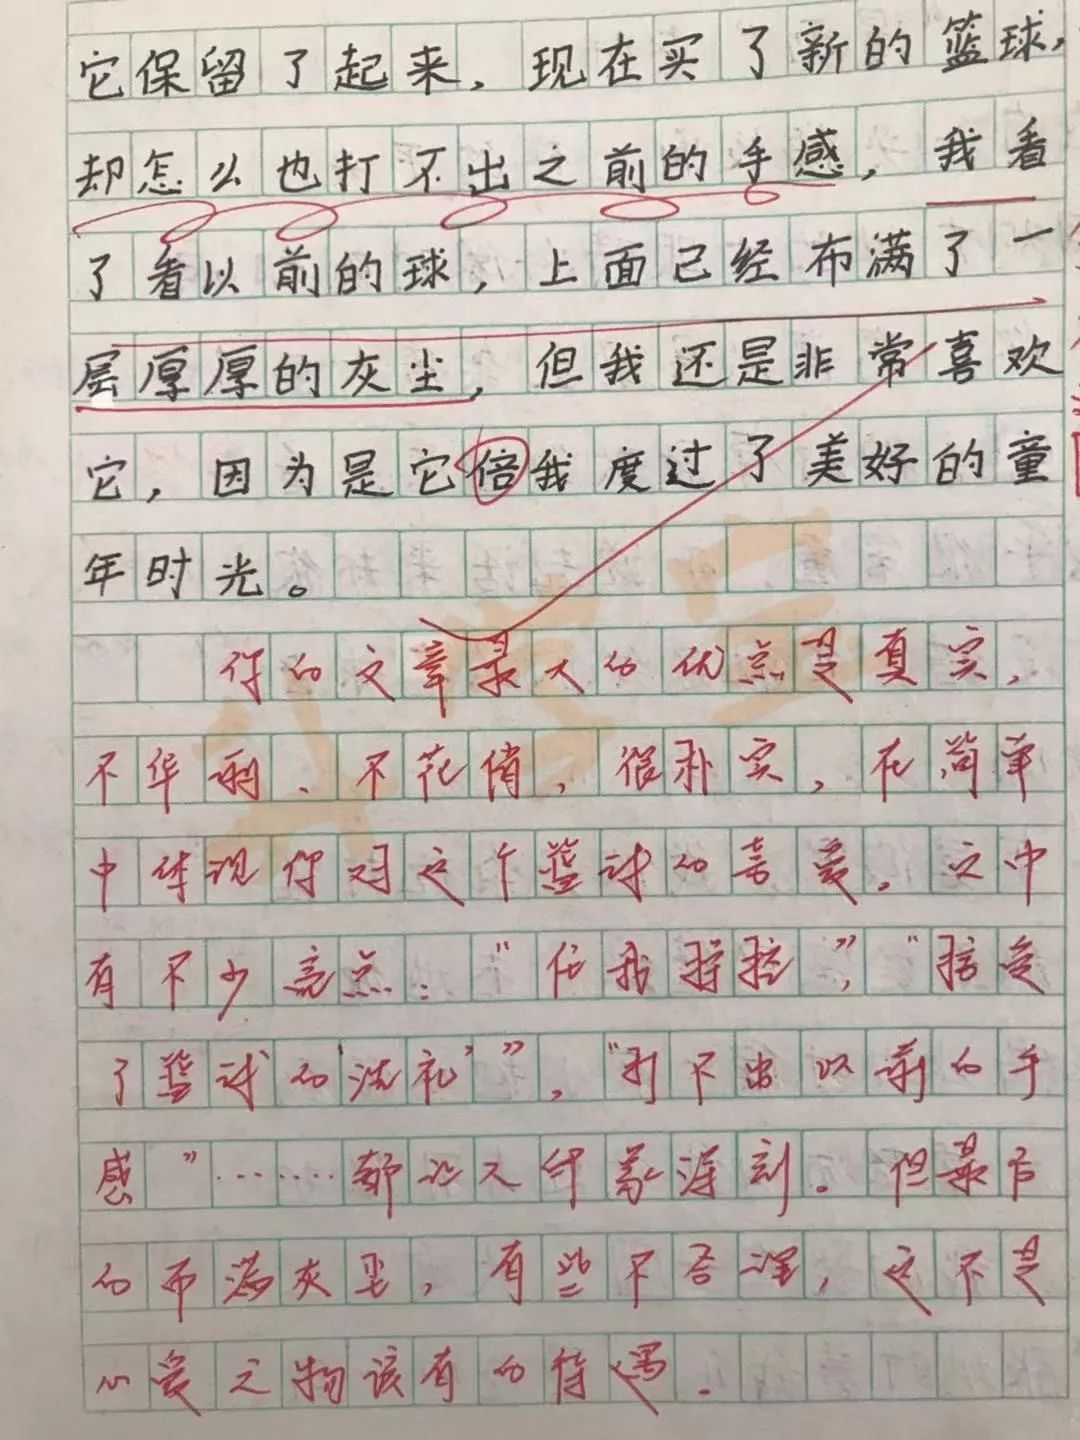 它保留了起来,现在买了新的篮球,
却怎么也打不出之前的手感,我看
了看以前的球,上面已经布满了一
层厚厚的灰尘,但我还是非常喜欢
它,因为是它倍我度过了美好的童
年时光。
你的文章最大的优点是真实,
不华丽、不花俏,很朴实,在简单
中体现你对这个篮球的喜爱。文中
有不少亮点:“任我掌控”,“接受
了篮球的洗礼”,“打不出以前的手
感”……都让人印象深刻。但最后
的布满灰尘,有些不合理,这不是
心爱之物该有的待遇.